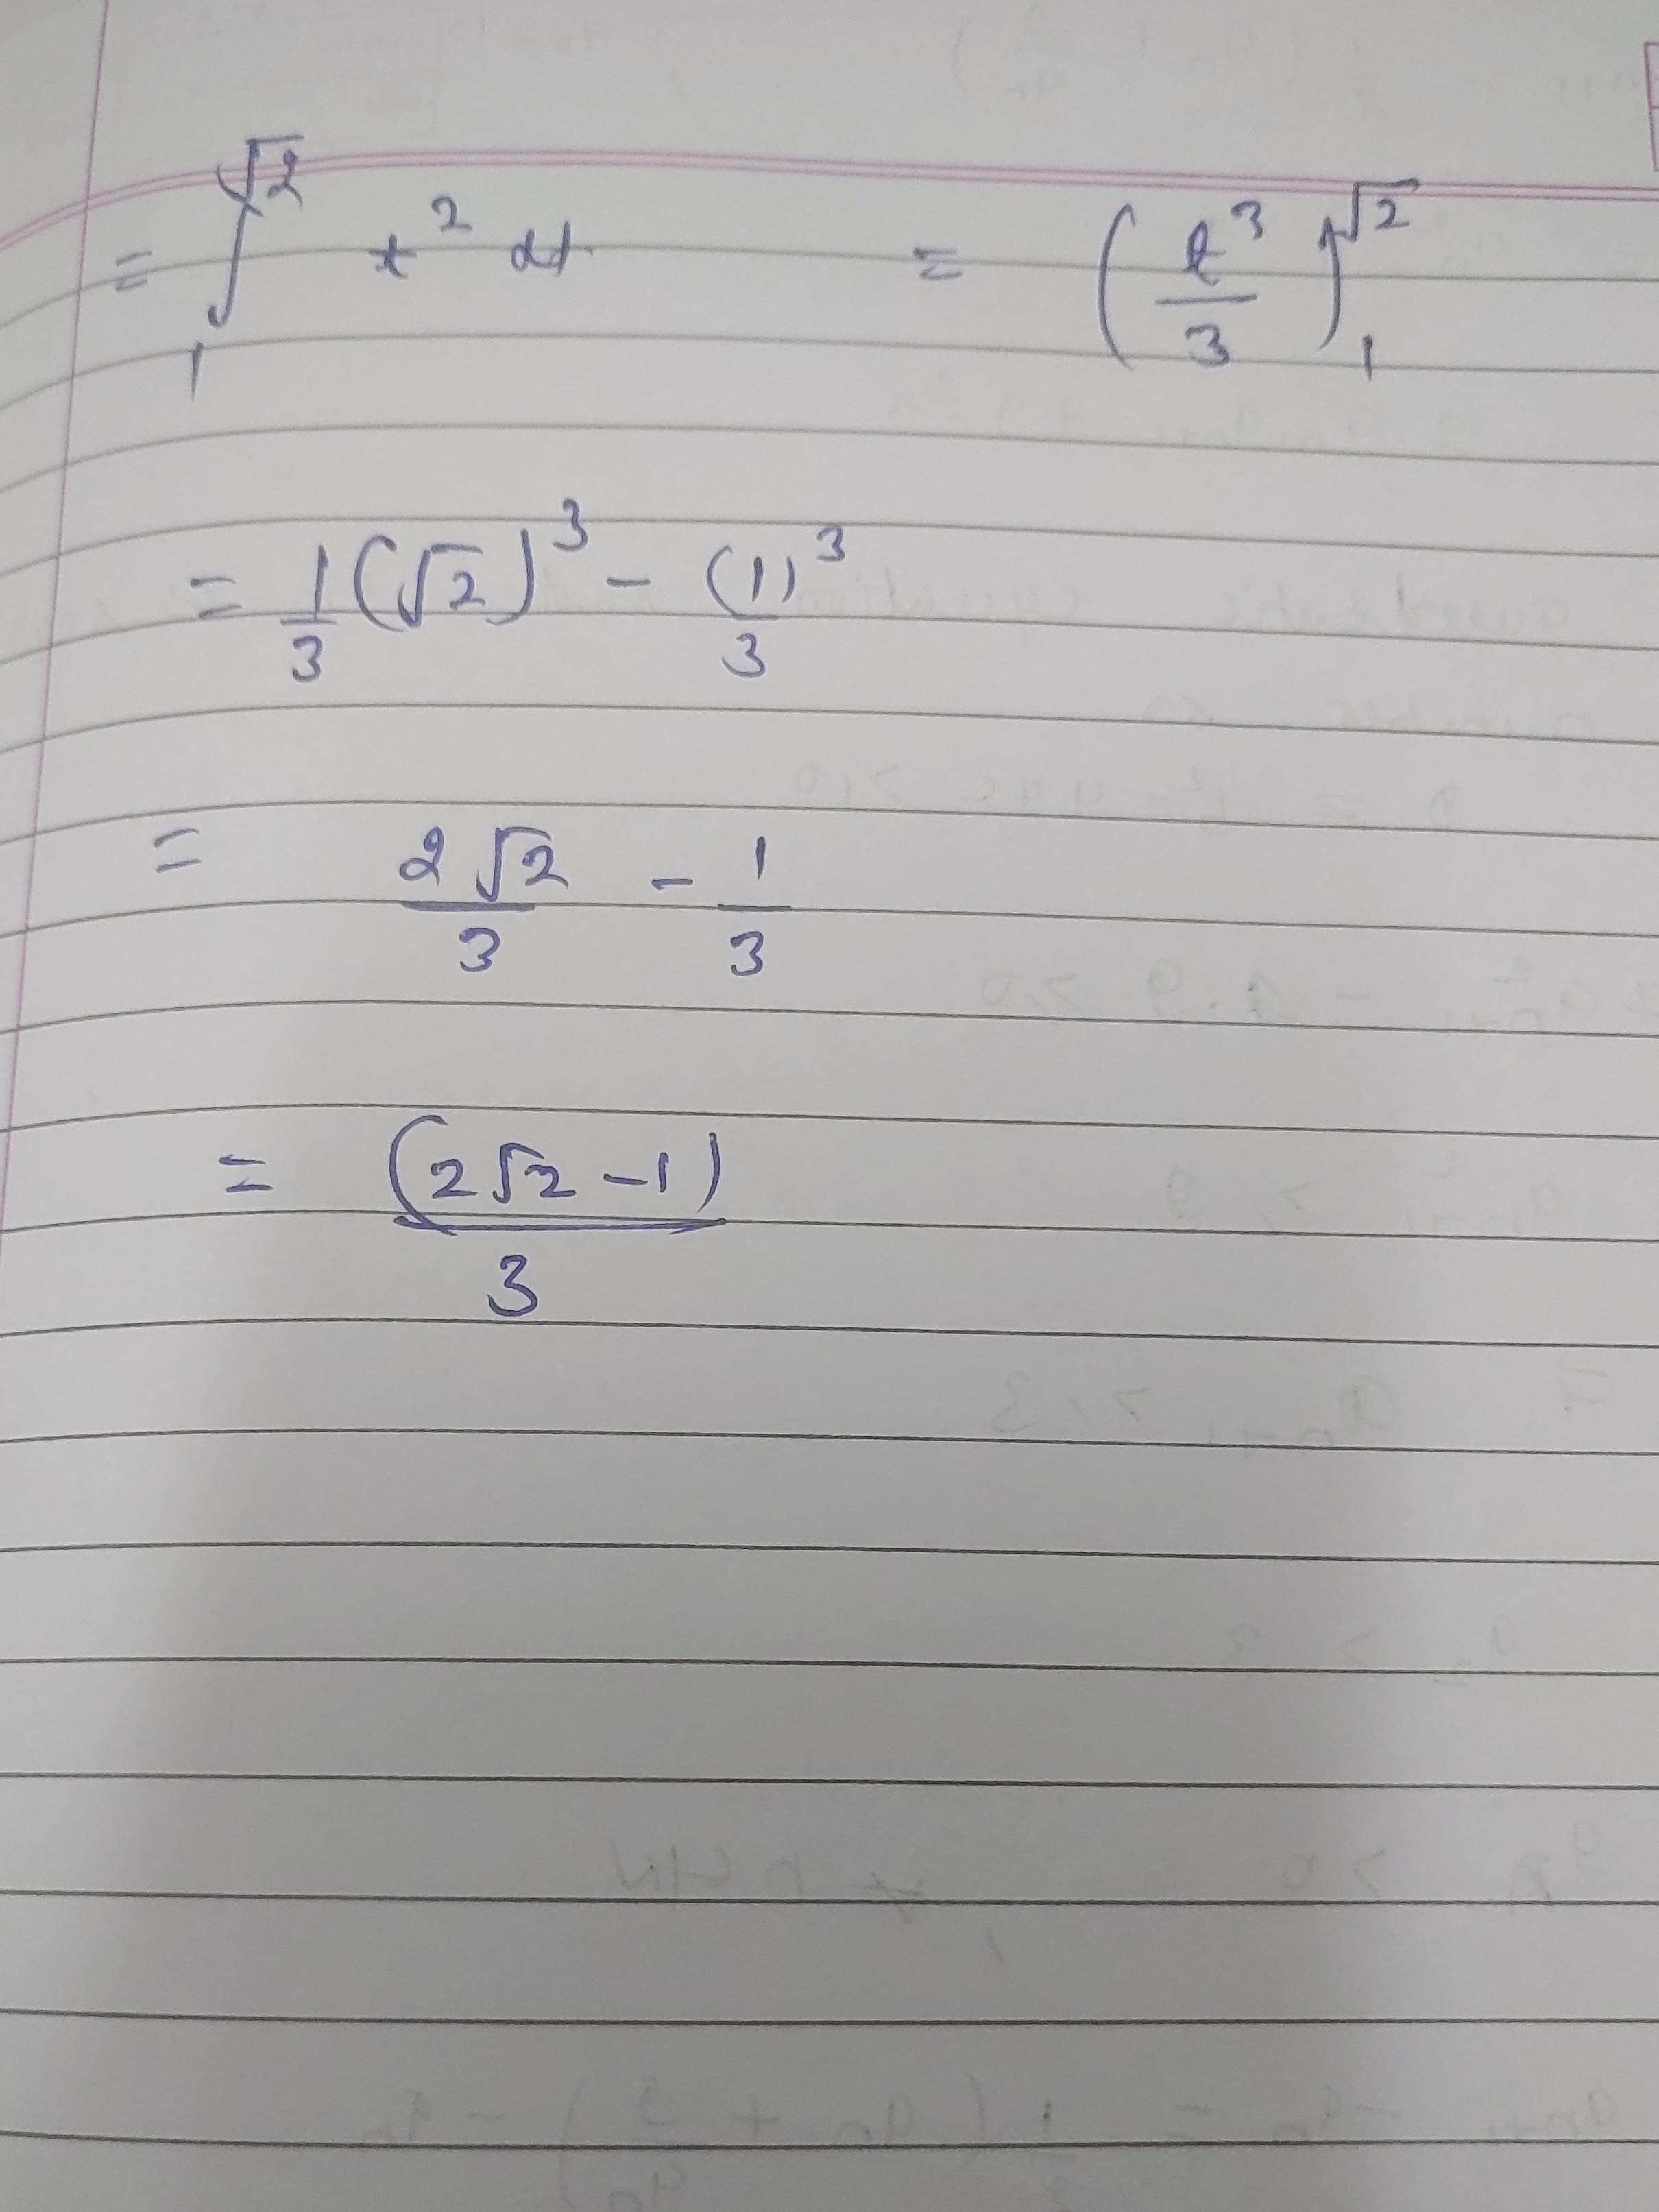 = ∫₁^√2 t² dt = (t³/3)₁^√2
= 1/3 (√2)³ - (1)³/3
= 2√2/3 - 1/3
= (2√2 - 1)/3